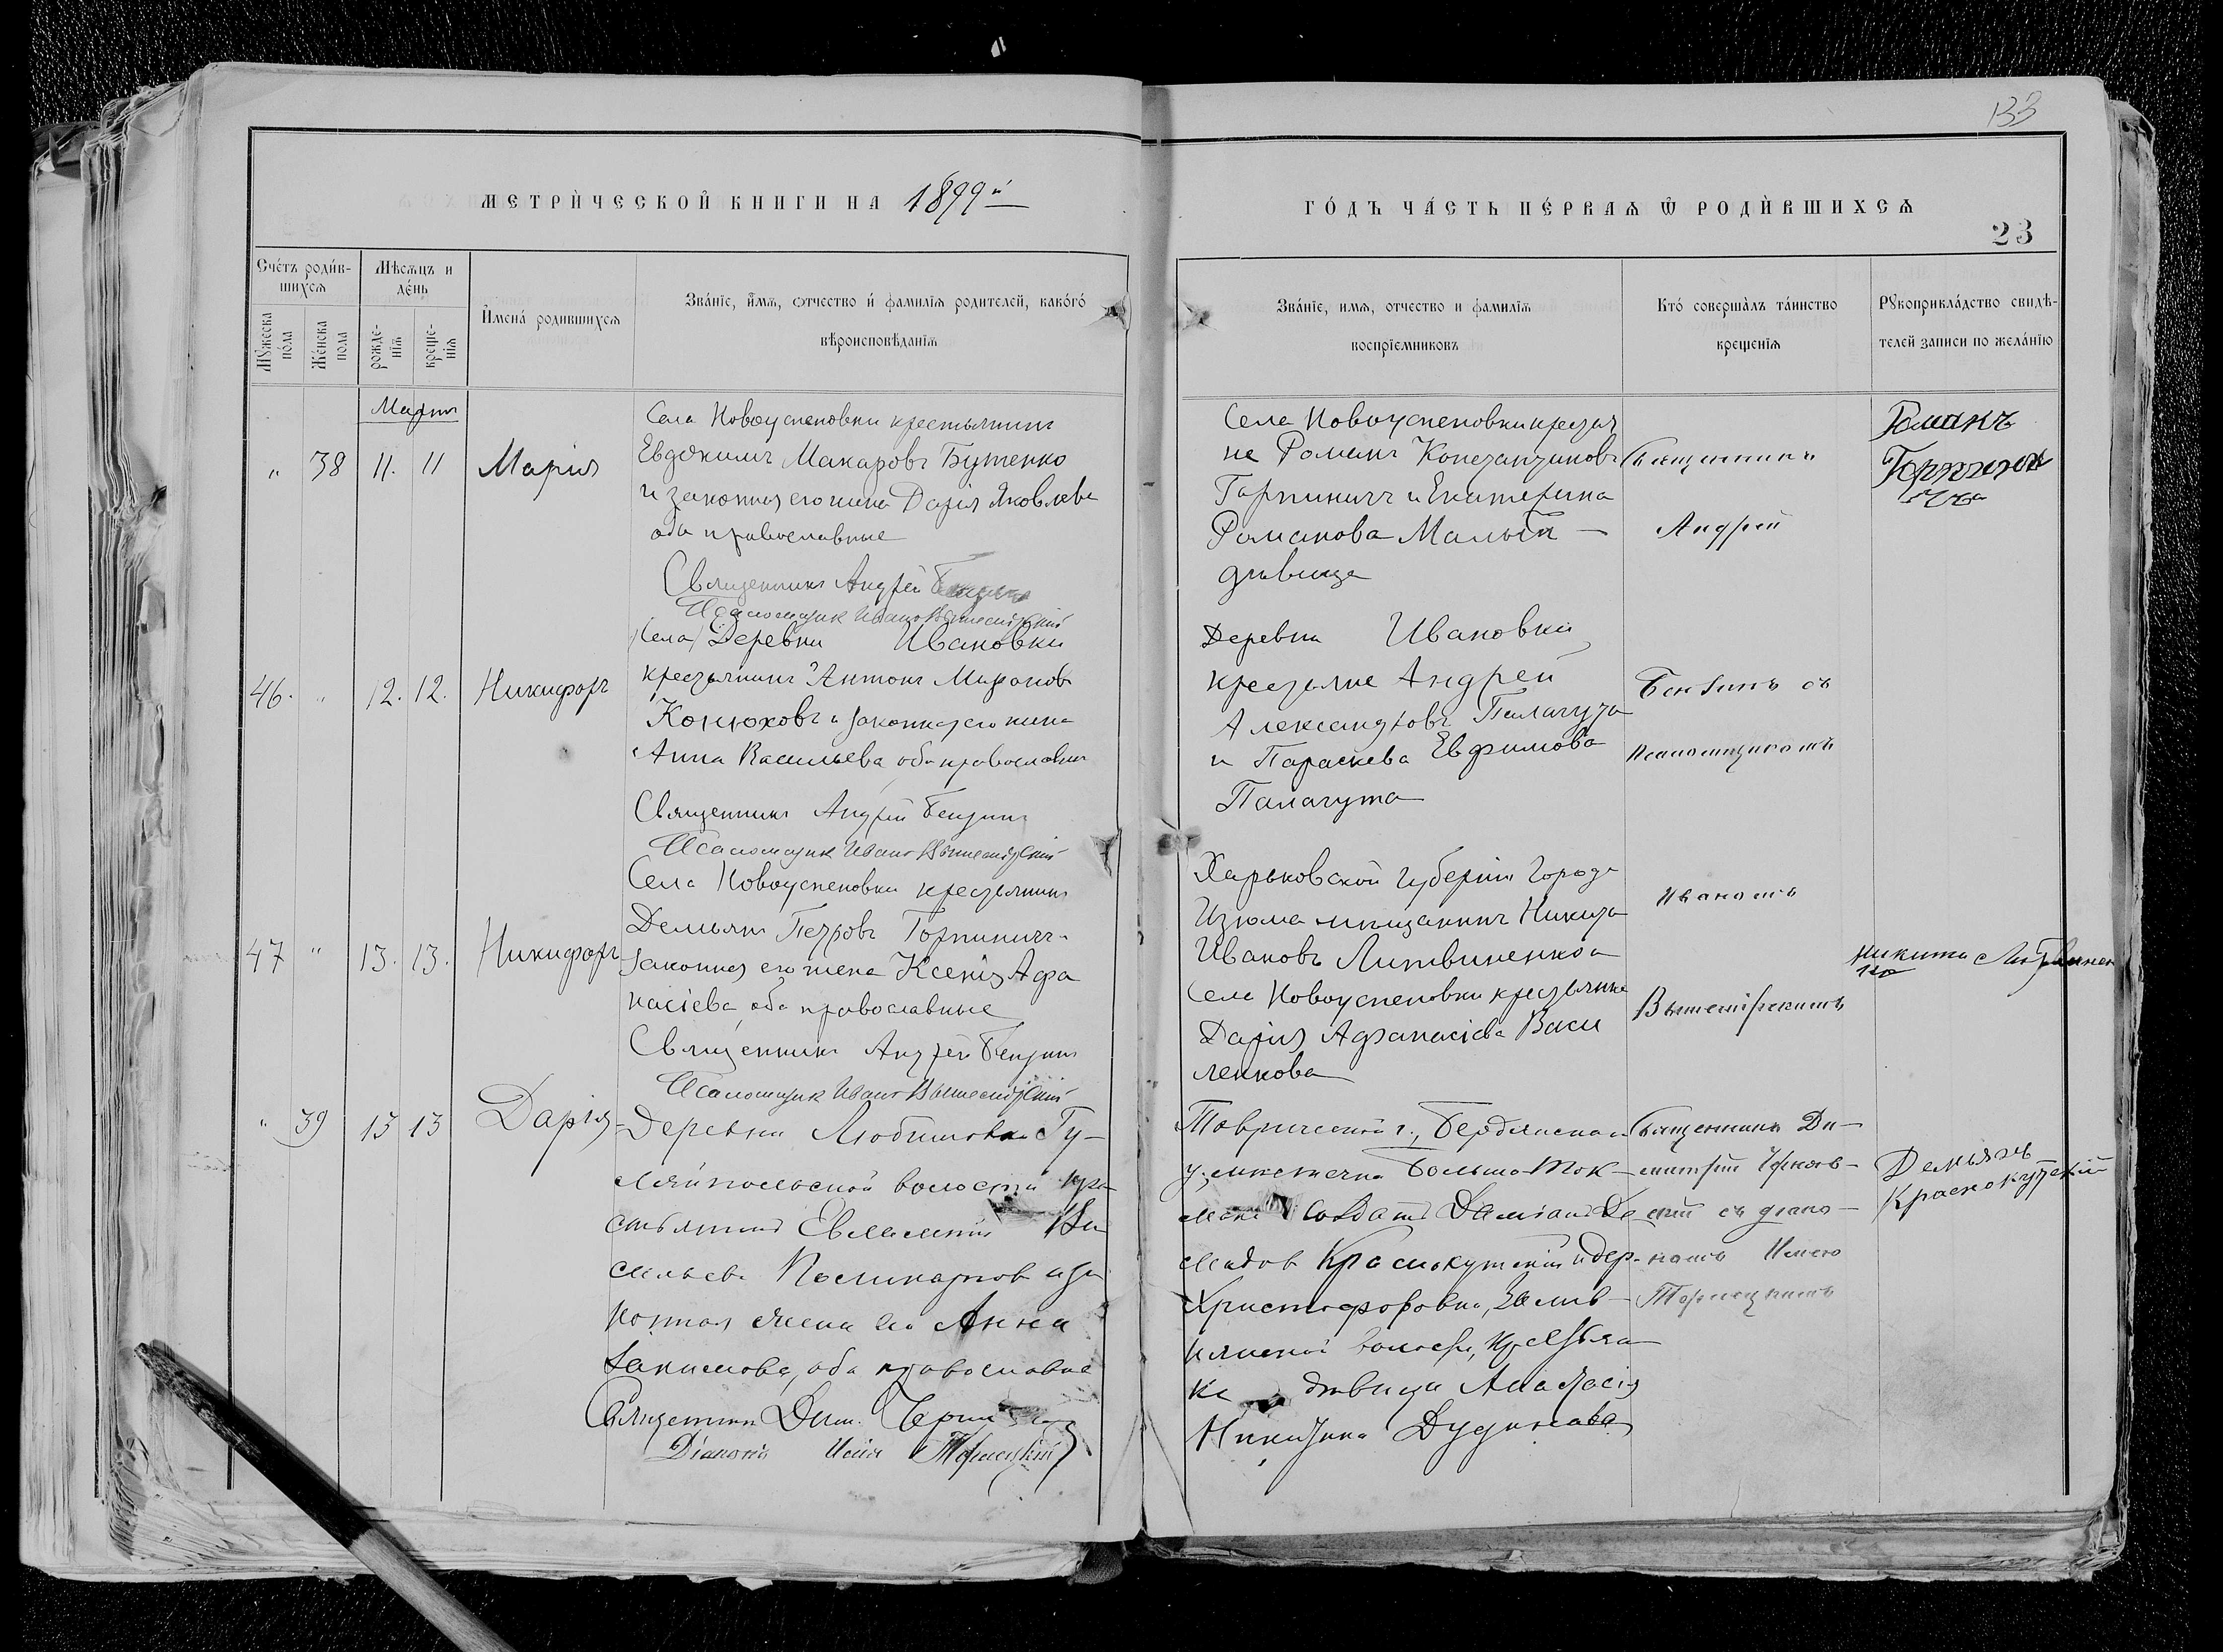 133
МЕТРИ́ЧЕСКОЙ КНИГИ НА 1899й
ГО́ДЪ ЧА́СТЬ ПЕ́РВАѦ Ѿ РОДИ́ВШИХСѦ
23
Сче́тъ роди́в-
шихсѧ
Мѣсѧцъ и
де́нь
Мꙋжеска
по́ла
Же́нска
пола
рожде-
нїѧ
креще-
нїѧ
И҆мена́ родившихсѧ
Зва́нїе, и҆́мѧ, ѻтчество и҆ фамилїѧ родителей, како́гѡ
вѣроисповѣданїѧ
Зва́нїе, имѧ, отчество и фамилїѧ
воспрїемниковъ
Кто́ соверша̀лъ та́инство
крещенїѧ
Рꙋкоприкла́дство свидѣ-
телей записи по жела́нїю
Мартъ
" 38 11. 11 Марія
Села Новоуспеновки крестьянинъ
Евдокимъ Макаровъ Бутенко
и законная его жена Дарія Яковлева
оба православные
Священникъ Андрей
Псаломщик Иванъ
Села Новоуспеновки крестья
не Романъ Константиновъ
Горпиничъ и Екатерина
Романова
дѣвица
Священникъ
Андрей
Романъ
46. " 12. 12. Никифоръ
Села Деревни Ивановки
крестьянинъ Антонъ Мироновъ
Конюховъ и законная его жена
Анна Васильева оба православные
Священникъ Андрей
Псаломщик Иванъ
Деревни Ивановки
крестьяне Андрей
Александровъ Палагута
и Параскева Евфимова
Палагута
съ
псаломщикомъ
47 " 13. 13. Никифоръ
Села Новоуспеновки крестьянинъ
Демьянъ Петровъ Горпиничъ и
законная его жена Ксенія Афа
насіева оба православные
Священникъ Андрей
Псаломщик Иванъ
Харьковской губерніи Города
Изюма мѣщанинъ Никита
Ивановъ Литвиненко и
села Новоуспеновки крестьянка
Дарія Афанасіева Васи
ленкова
Иваномъ
Никита Литвинен
ко
" 39 13 13 Дарія
Деревни Любимовки Гу-
ляйпольской волости кре
стьянинъ Евлампій Ва
сильевъ Поликарпов и за
конная жена его Анна
Іакимова, оба православные
Священникъ Дим.
Діаконъ Исаія
Таврической г., Бердянскаго
у, мѣстечка Больша Ток-
мака солдатъ Даміанъ Де
мидов Краснокутскій и дер.
Христофоровки,
волости, крестьян
ка дѣвица Анастасія
Никитина
Священникъ Ди-
митрій
съ діако-
номъ Исаею
Демьянъ
Краснокутскій